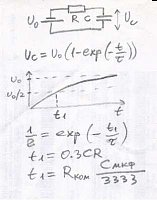 U₀ R C Uc
Uc = U₀ (1-exp(-t/τ))
U₀
U₀/2
t₁ t
1/2 = exp(-t₁/τ)
t₁ = 0.3CR
t₁ = Rком Cмкф/3333